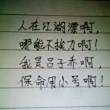 人在江湖漂啊!
哪能不挨刀啊!
我是吕子乔啊,
保命用小号啊!